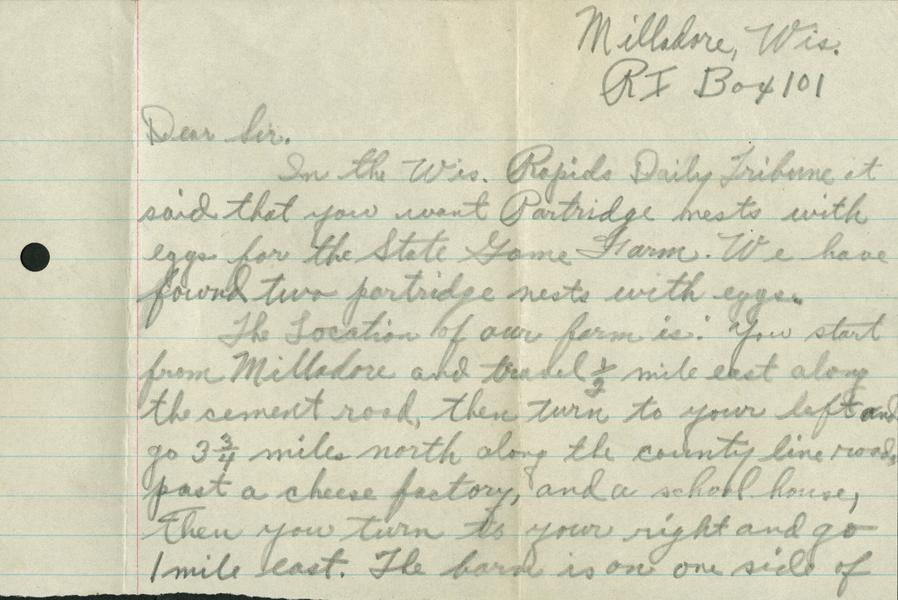 Milladore, Wis.
RI Box 101
Dear Sir.
In the Wis. Rapids Daily Tribune it
said that you want Partridge nests with
eggs for the State Game Farm. We have
found two partridge nests with eggs.
The Location of our farm is: You start
from Milladore and travel 1/2 mile east along
the cement road, then turn to your left and
go 3 3/4 miles north along the county line road,
past a cheese factory, and a school house,
Then you turn to your right and go
1 mile east. The barn is on one side of